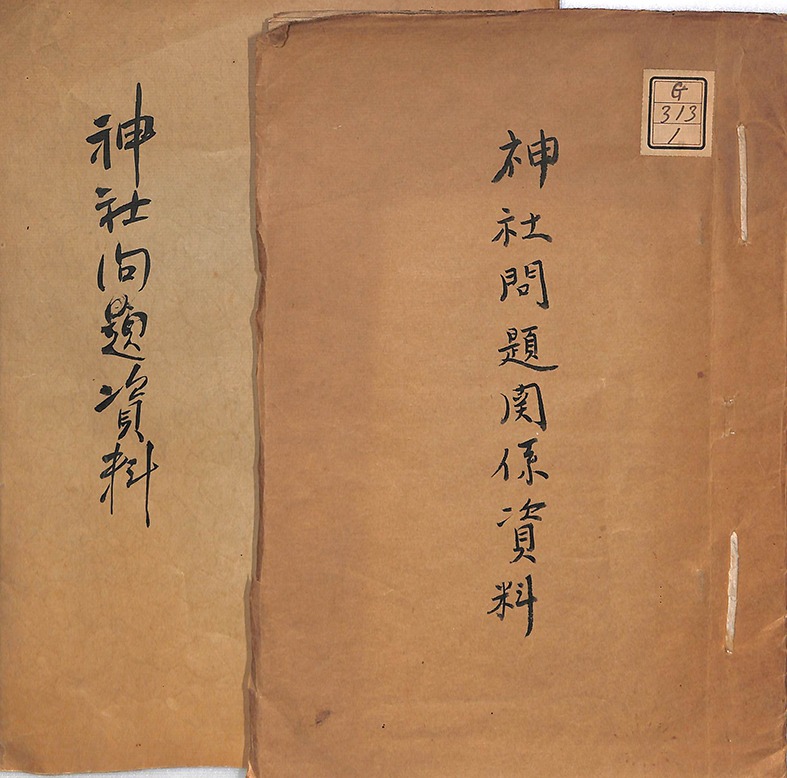 神社問題関係資料
G
313
1
神社问題資料